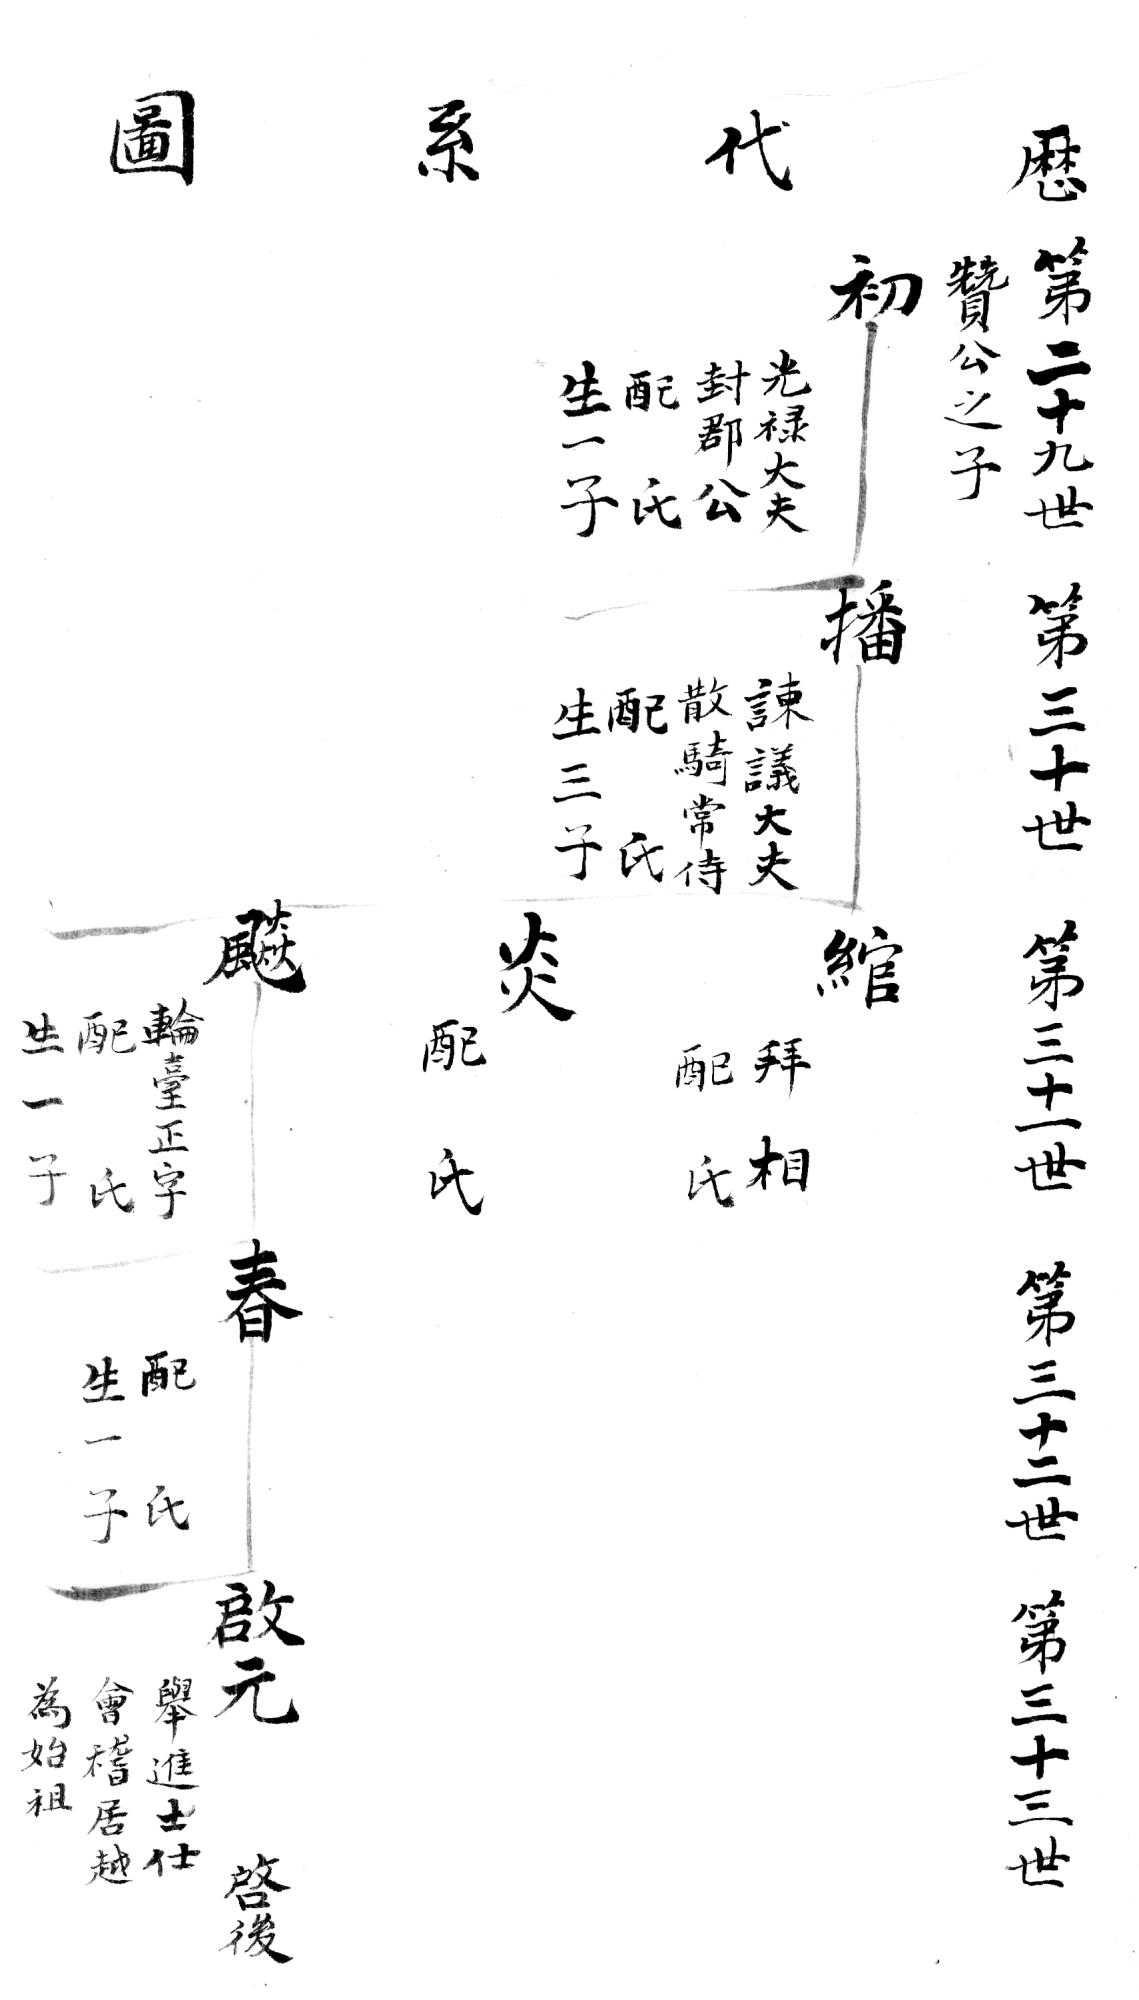 歷代系圖
第二十九世
贊公之子
初
光禄大夫
封郡公
配氏
生一子
第三十世
播
諫議大夫
散騎常侍
配氏
生三子
第三十一世
綰
拜相
配氏
炎
配氏
飈
輪臺正字
配氏
生一子
第三十二世
春
配氏
生一子
第三十三世
啟元
舉進士仕
會稽居越
為始祖
啓後